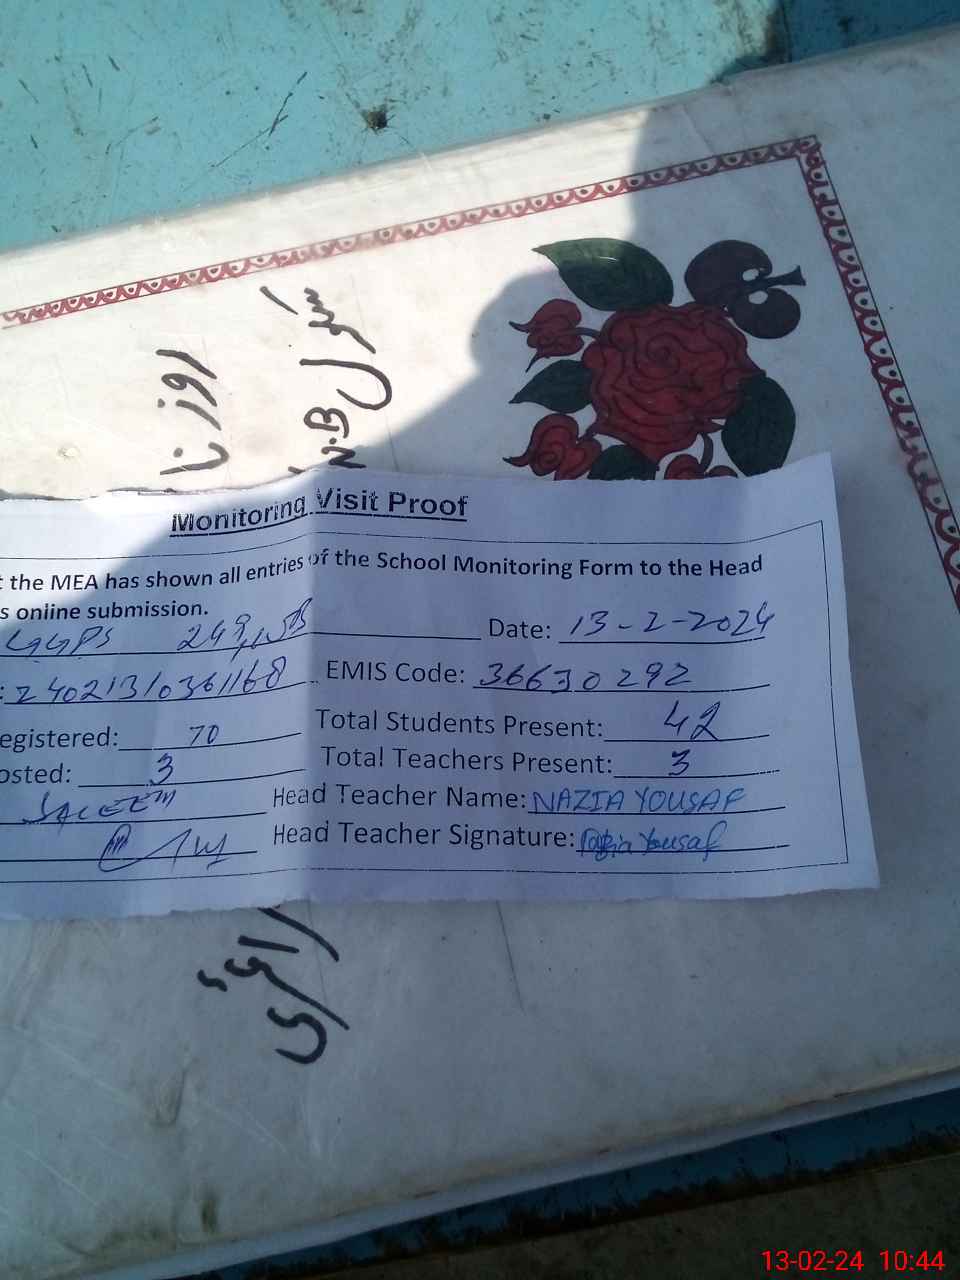 روزنا
N.B
Monitoring Visit Proof
t the MEA has shown all entries of the School Monitoring Form to the Head
s online submission.
GGPS 249 Date: 13-2-2024
: 24021310361168 EMIS Code: 36630292
egistered: 70 Total Students Present: 42
osted: 3 Total Teachers Present: 3
SALEEM Head Teacher Name: NAZIA YOUSAF
Head Teacher Signature: Nazia Yousaf
13-02-24 10:44